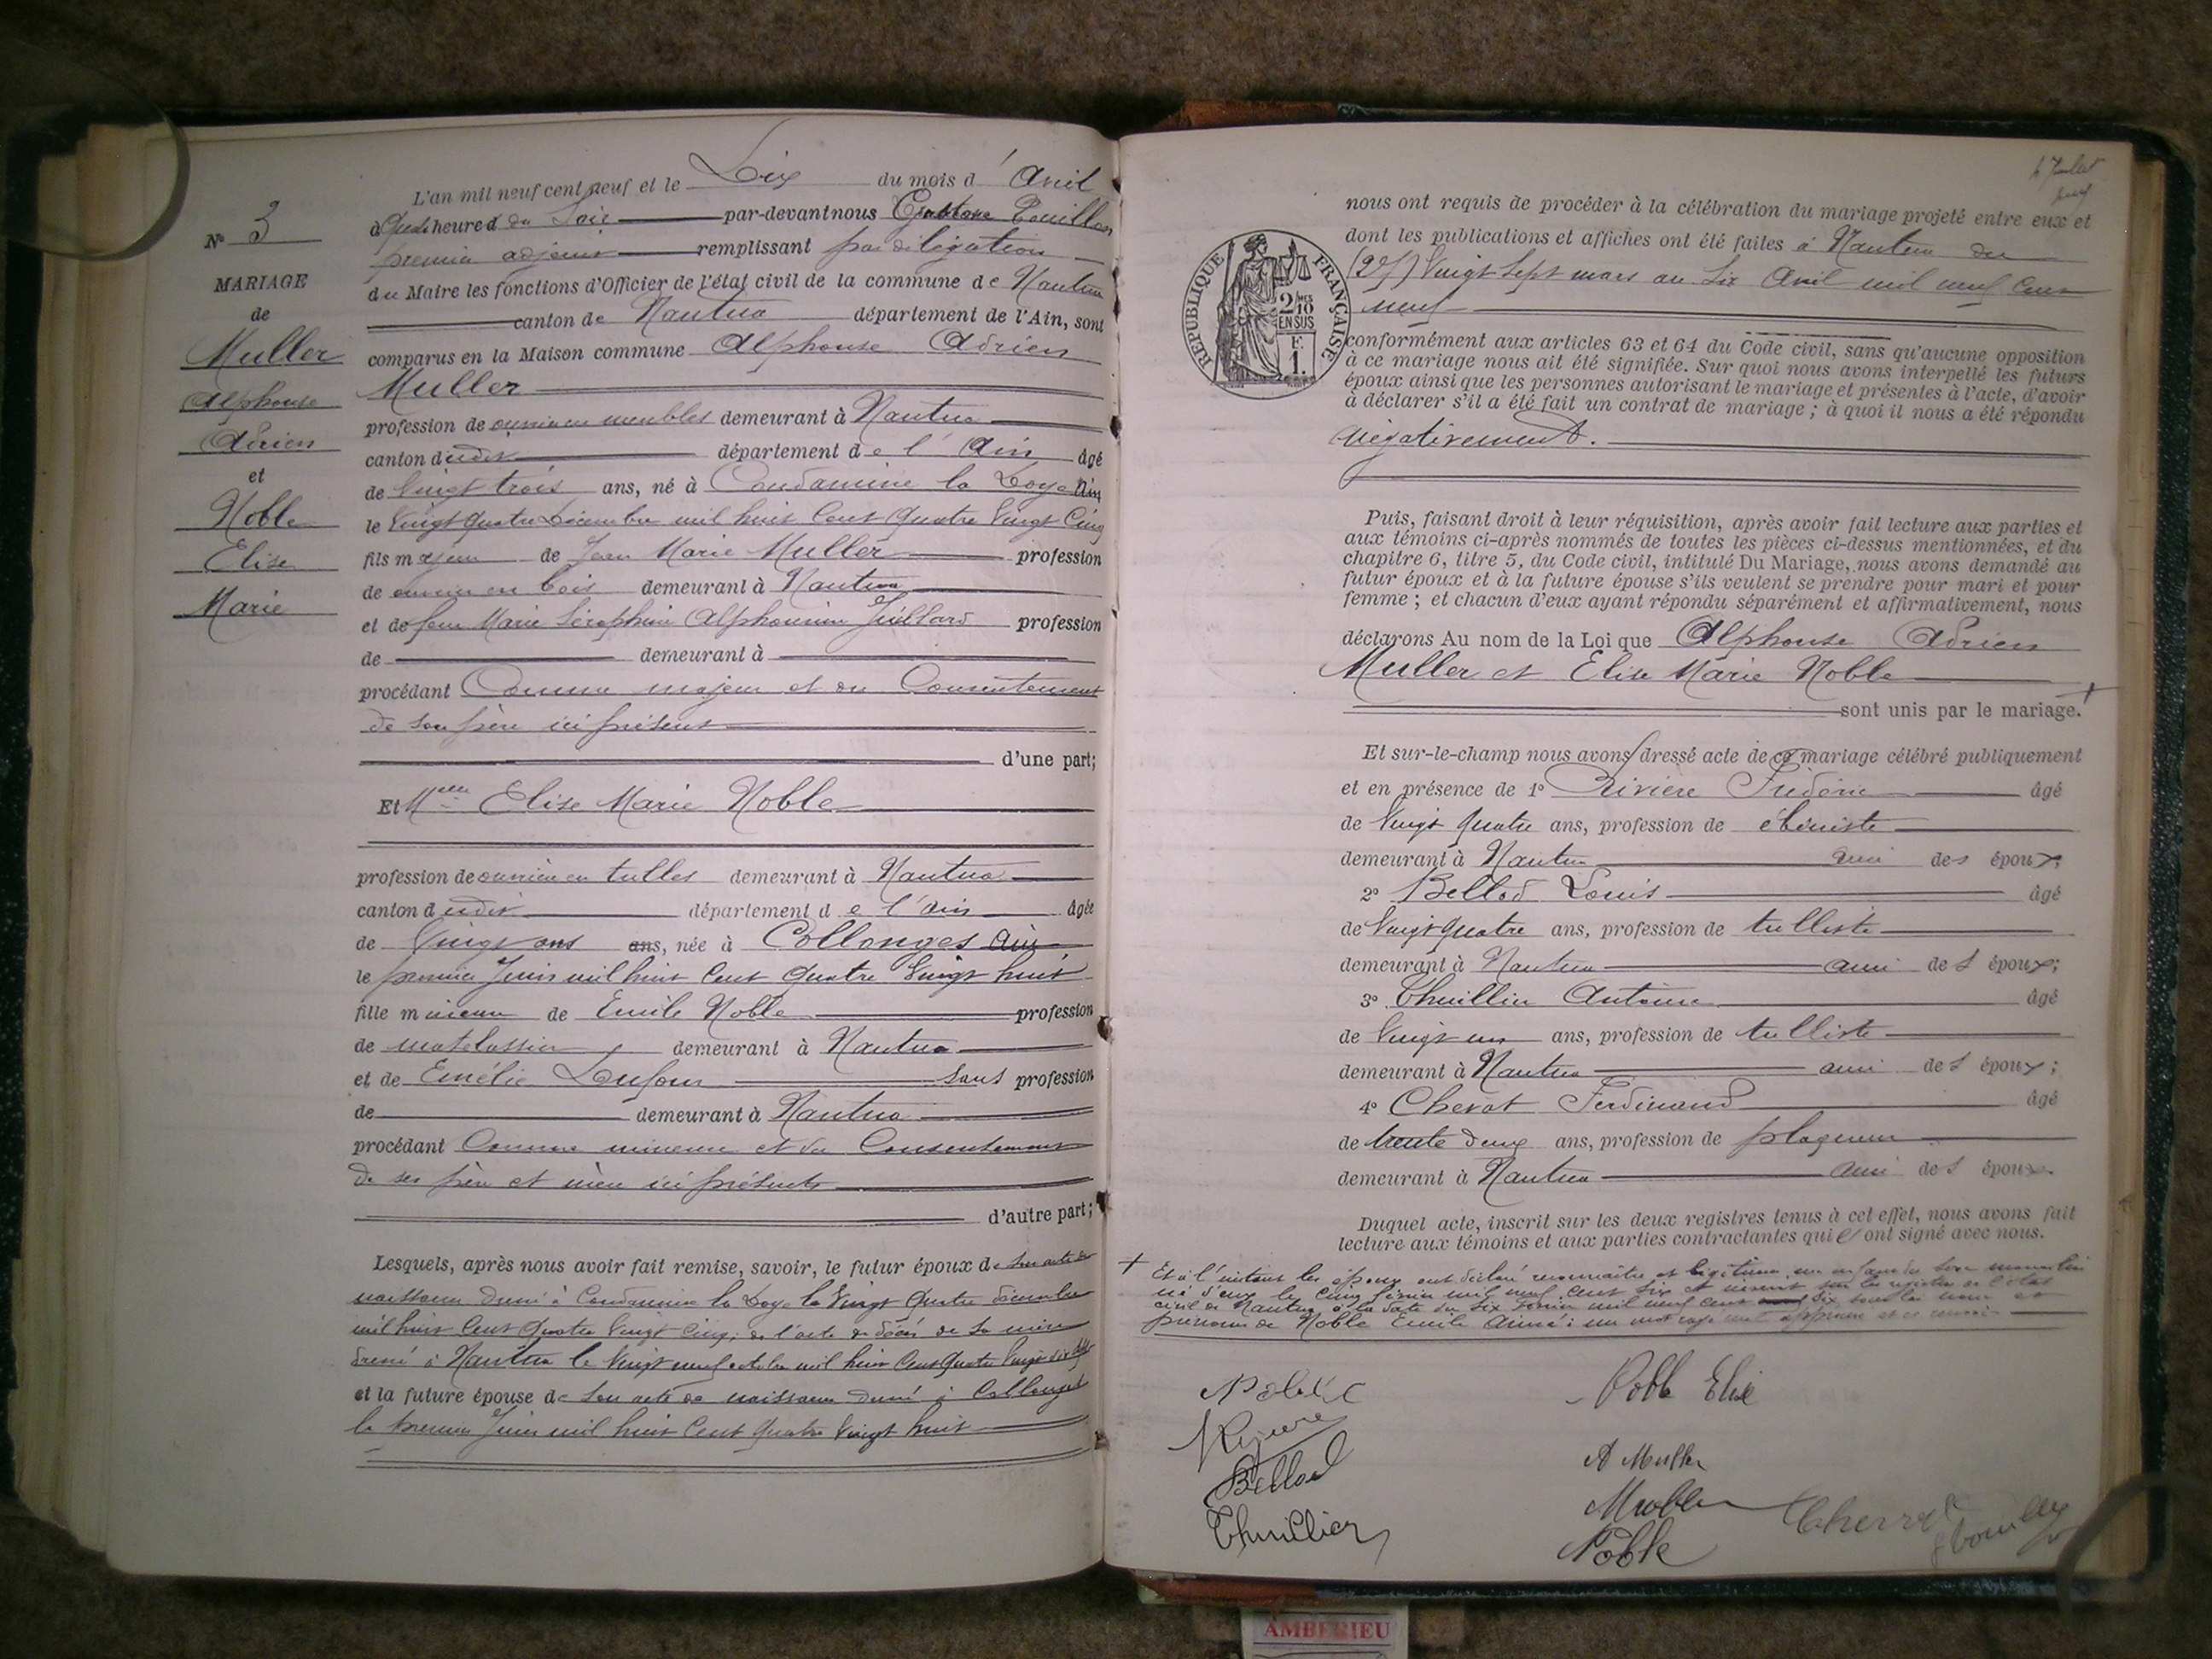 L'an mil neuf cent neuf et le Dix du mois d'Avril
heures du Soir par-devant nous
premier adjoint remplissant par délégation
du Maire les fonctions d'Officier de l'état civil de la commune de Nantua
canton de Nantua département de l'Ain, sont
comparus en la Maison commune Alphonse Adrien
Muller
profession de meubles demeurant à Nantua
canton dudit département de l'Ain âgé
de Vingt trois ans, né à Condamine la Doye Ain
le Vingt quatre Décembre mil huit Cent Quatre Vingt Cinq
fils majeur de Jean Marie Muller profession
de ouvrier en bois demeurant à Nantua
et de feue Marie Séraphine Alphonsine Juillard profession
de demeurant à
procédant Comme majeur et du Consentement
de son père ici présent
d'une part;
Et Melle Elise Marie Noble
profession de ouvrière en tulles demeurant à Nantua
canton dudit département de l'Ain âgée
de Vingt ans ans, née à Collonges Ain
le premier Juin mil huit Cent Quatre Vingt huit
fille mineure de Emile Noble profession
de matelassier demeurant à Nantua
et de Emélie Dufour sans profession
de demeurant à Nantua
procédant Comme mineure et du Consentement
de ses père et mère ici présents
d'autre part;
Lesquels, après nous avoir fait remise, savoir, le futur époux de son acte de
naissance dressé à Condamine la Doye le Vingt Quatre décembre
mil huit Cent Quatre Vingt Cinq, de l'acte de décès de sa mère
dressé à Nantua le Vingt neuf mil huit Cent Quatre Vingt
et la future épouse de son acte de naissance dressé à Collonges
le premier Juin mil huit Cent Quatre Vingt huit
No 3
MARIAGE
de
Muller
Alphonse
Adrien
et
Noble
Elise
Marie
nous ont requis de procéder à la célébration du mariage projeté entre eux et
dont les publications et affiches ont été faites à Nantua du
(27) Vingt Sept mars au Six Avril mil neuf Cent
neuf
RÉPUBLIQUE FRANÇAISE
2/10 EN SUS
F. 1.
conformément aux articles 63 et 64 du Code civil, sans qu'aucune opposition
à ce mariage nous ait été signifiée. Sur quoi nous avons interpellé les futurs
époux ainsi que les personnes autorisant le mariage et présentes à l'acte, d'avoir
à déclarer s'il a été fait un contrat de mariage ; à quoi il nous a été répondu
négativement.
Puis, faisant droit à leur réquisition, après avoir fait lecture aux parties et
aux témoins ci-après nommés de toutes les pièces ci-dessus mentionnées, et du
chapitre 6, titre 5, du Code civil, intitulé Du Mariage, nous avons demandé au
futur époux et à la future épouse s'ils veulent se prendre pour mari et pour
femme ; et chacun d'eux ayant répondu séparément et affirmativement, nous
déclarons Au nom de la Loi que Alphonse Adrien
Muller et Elise Marie Noble
sont unis par le mariage. +
Et sur-le-champ nous avons dressé acte de ce mariage célébré publiquement
et en présence de 1° Rivière Frédéric âgé
de Vingt Quatre ans, profession de ébéniste
demeurant à Nantua ami des époux;
2° Bellod Louis âgé
de Vingt quatre ans, profession de tulliste
demeurant à Nantua ami des époux;
3° Thuillier Antoine âgé
de Vingt un ans, profession de tulliste
demeurant à Nantua ami des époux;
4° Ferdinand âgé
de trente deux ans, profession de plaqueur
demeurant à Nantua ami des époux.
Duquel acte, inscrit sur les deux registres tenus à cet effet, nous avons fait
lecture aux témoins et aux parties contractantes qui ont signé avec nous.
+ Et à l'instant les époux ont déclaré reconnaître et légitimer un enfant du sexe masculin
né d'eux le Cinq février mil neuf cent six et inscrit sur les registres de l'état
civil de Nantua à la date du Six février mil neuf cent six sous les nom et
prénoms de Noble Emile Aimé :
Noble
Noble Elise
Rivière
A Muller
Bellod
Muller
Thuillier
Noble
AMBERIEU